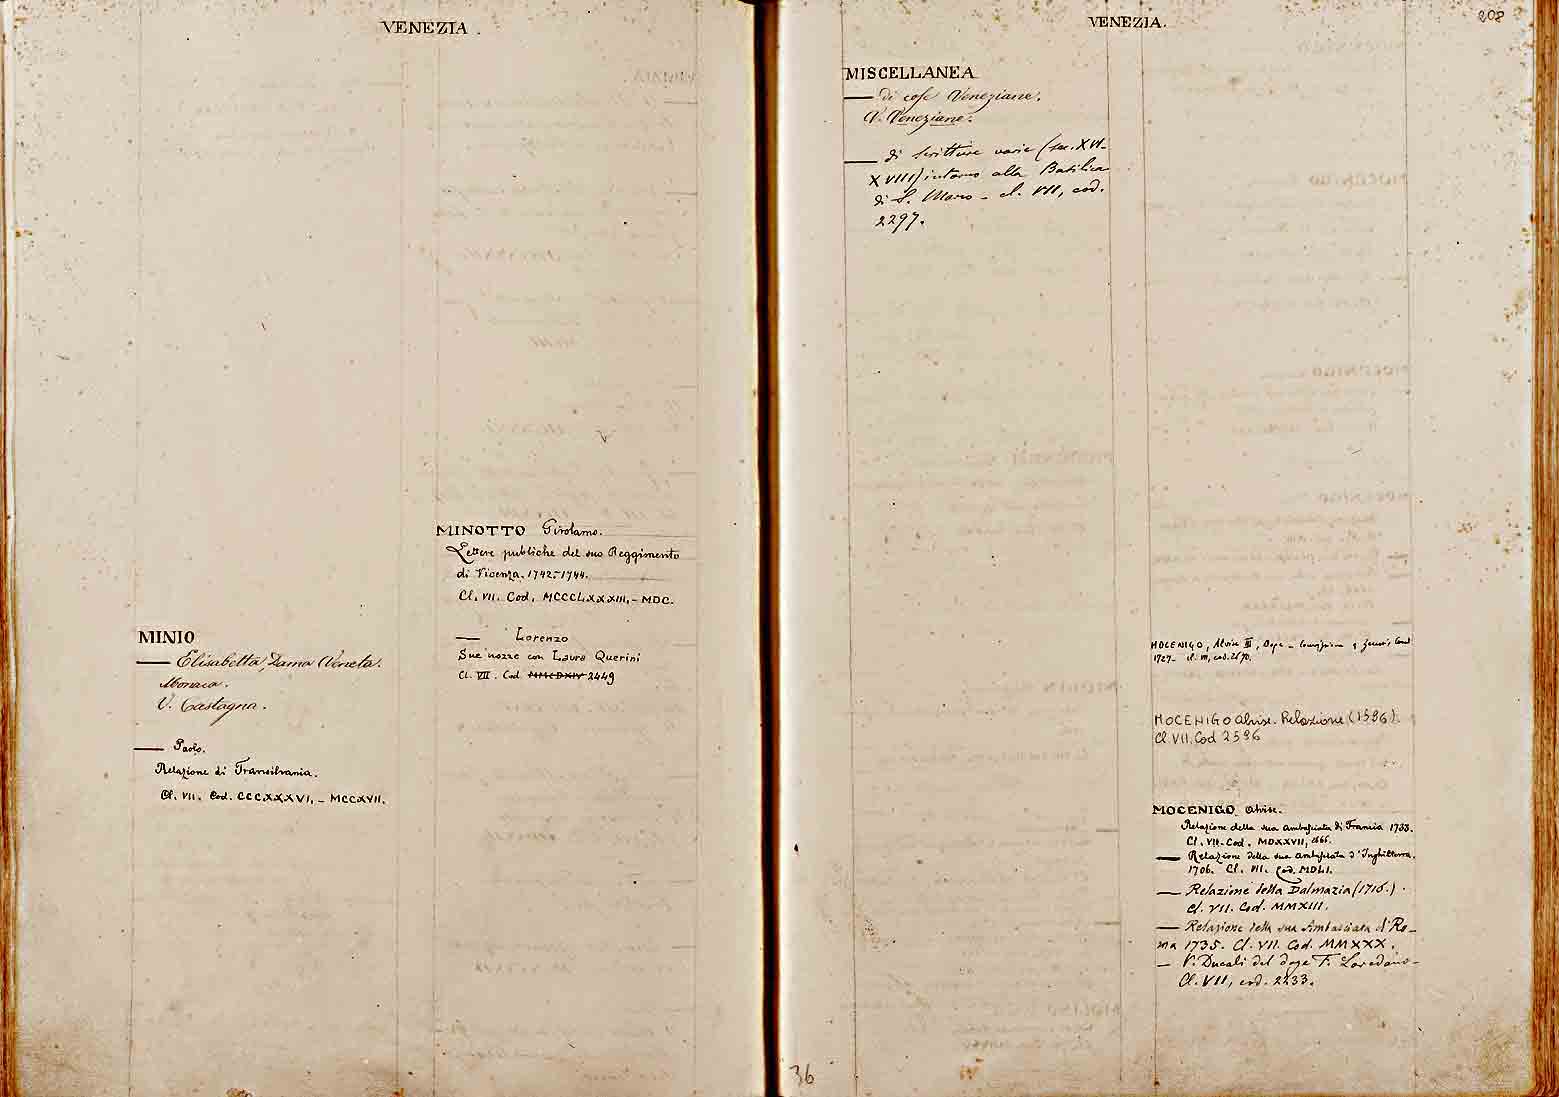 VENEZIA.
MINIO
— Elisabetta, Dama Veneta.
Monaca.
V. Castagna.
— Paolo.
Relazione di Transilvania.
Cl. VII. Cod. CCCXXXVI. - MCCXVII.
MINOTTO Girolamo.
Lettere pubbliche del suo Reggimento
di Vicenza. 1742.-1744.
Cl. VII. Cod. MCCCLXXXIII. - MDC.
— Lorenzo
Sue nozze con Laura Querini
Cl. VII. Cod. MMCDXIV 2449
VENEZIA.
208
MISCELLANEA
— di cose Veneziane.
V. Veneziane.
— di scritture varie (sec. XVI-
XVIII) intorno alla Basilica
di S. Marco - cl. VII, cod.
2297.
MOCENIGO, Alvise III, Doge -
1727 - cl. VII, cod. 2670.
MOCENIGO Alvise. Relazione (1596).
Cl. VII. Cod 2596
MOCENIGO Alvise.
Relazione della sua ambasciata di Francia 1733.
Cl. VII. Cod. MDXXVII,
— Relazione della sua ambasciata d'Inghilterra.
1706. Cl. VII. Cod. MDLI.
— Relazione della Dalmazia (1716.) .
Cl. VII. Cod. MMXIII.
— Relazione della sua Ambasciata di Ro-
ma 1735. Cl. VII. Cod. MMXXX.
— V. Ducali del doge F. Loredano -
Cl. VII, cod. 2233.
36